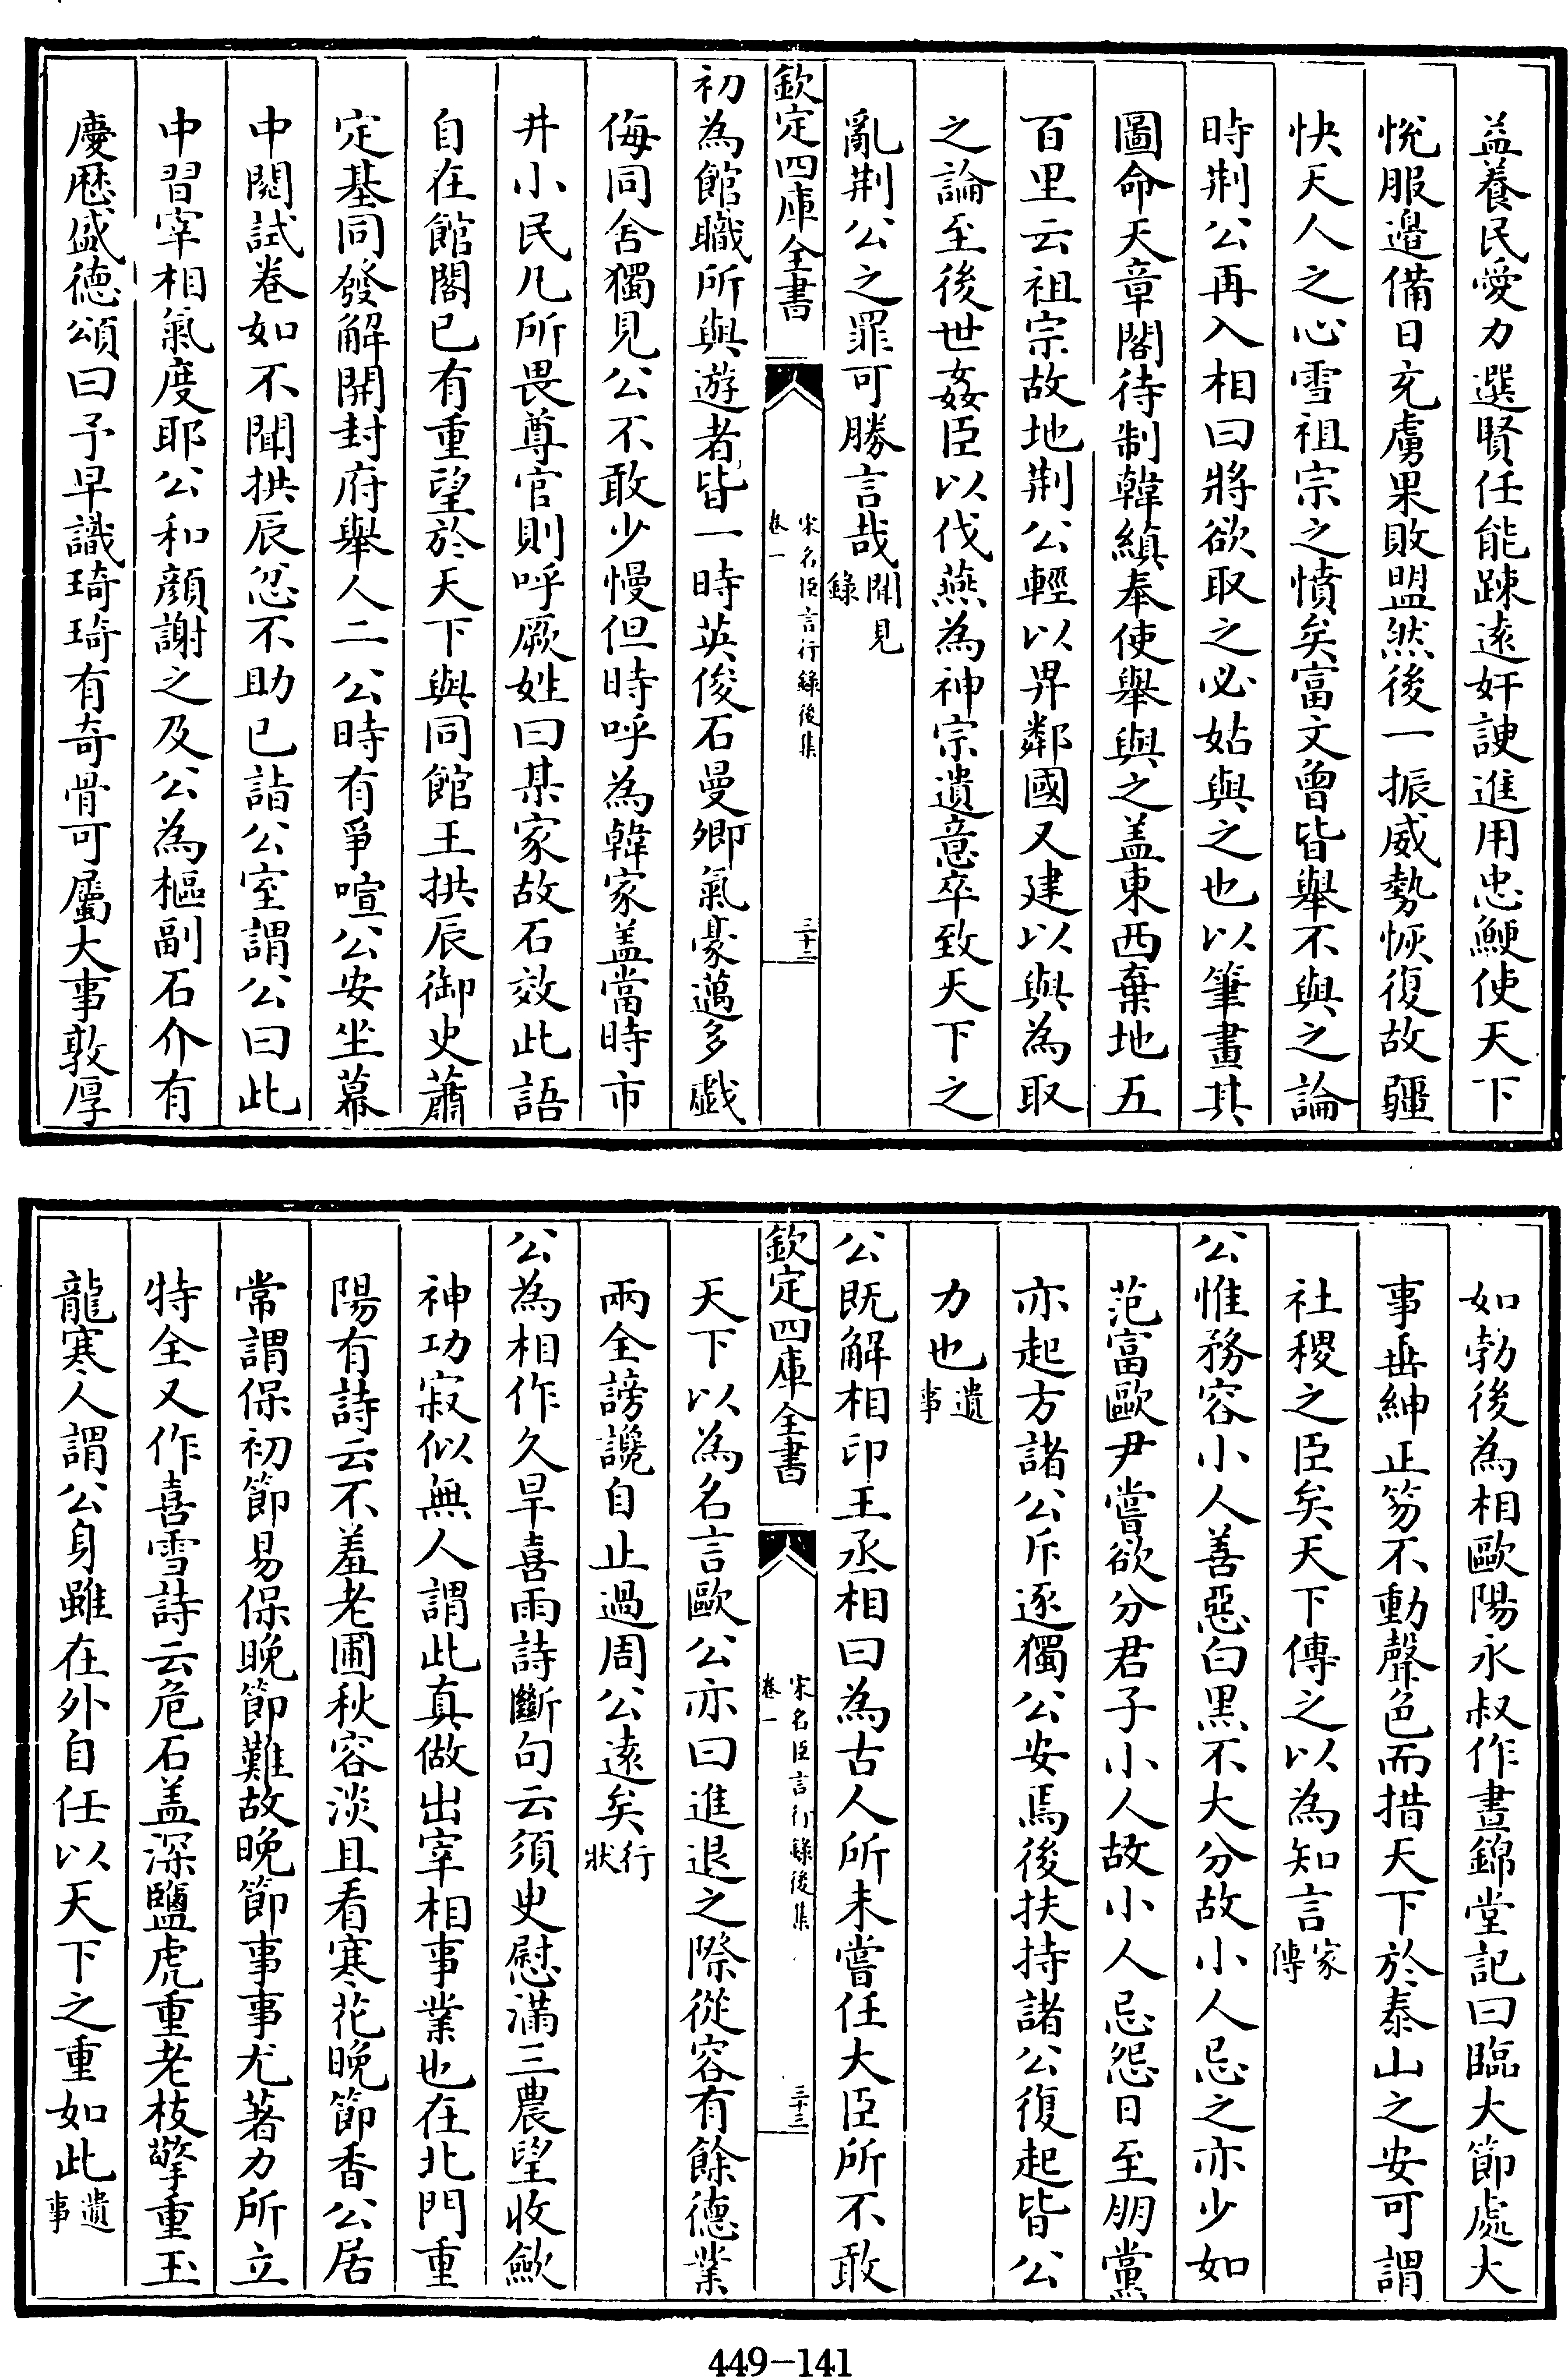 益養民愛力選賢任能踈逺奸諛進用忠鯁使天下
悅服邉備日充虜果敗盟然後一振威勢恢復故疆
快天人之心雪祖宗之憤矣富文曾皆舉不與之論
時荆公再入相曰將欲取之必姑與之也以筆畫其
圖命天章閣待制韓縝奉使舉與之盖東西棄地五
百里云祖宗故地荆公輕以畀鄰國又建以與為取
之論至後世姦臣以伐燕為神宗遺意卒致天下之
亂荆公之罪可勝言哉聞見錄
欽定四庫全書 宋名臣言行録後集 卷一 三十二
初為館職所與遊者皆一時英俊石曼卿氣豪邁多戲
侮同舍獨見公不敢少慢但時呼為韓家盖當時市
井小民凡所畏尊官則呼厥姓曰某家故石效此語
自在館閣已有重望於天下與同館王拱辰御史蕭
定基同發解開封府舉人二公時有爭喧公安坐幕
中閱試卷如不聞拱辰忿不助已詣公室謂公曰此
中習宰相氣度耶公和顔謝之及公為樞副石介有
慶厯盛德頌曰予早識琦琦有奇骨可屬大事敦厚
如勃後為相歐陽永叔作晝錦堂記曰臨大節處大
事垂紳正笏不動聲色而措天下於泰山之安可謂
社稷之臣矣天下傳之以為知言家傳
公惟務容小人善惡白黑不大分故小人忌之亦少如
范富歐尹嘗欲分君子小人故小人忌怨日至朋黨
亦起方諸公斥逐獨公安焉後扶持諸公復起皆公
力也遺事
公既解相印王丞相曰為古人所未嘗任大臣所不敢
欽定四庫全書 宋名臣言行録後集 卷一 三十三
天下以為名言歐公亦曰進退之際從容有餘德業
兩全謗讒自止過周公逺矣行狀
公為相作久旱喜雨詩斷句云須㬰慰滿三農望收歛
神功寂似無人謂此真做出宰相事業也在北門重
陽有詩云不羞老圃秋容淡且看寒花晚節香公居
常謂保初節易保晚節難故晚節事事尤著力所立
特全又作喜雪詩云危石盖深鹽虎重老枝擎重玉
龍寒人謂公身雖在外自任以天下之重如此遺事
449-141